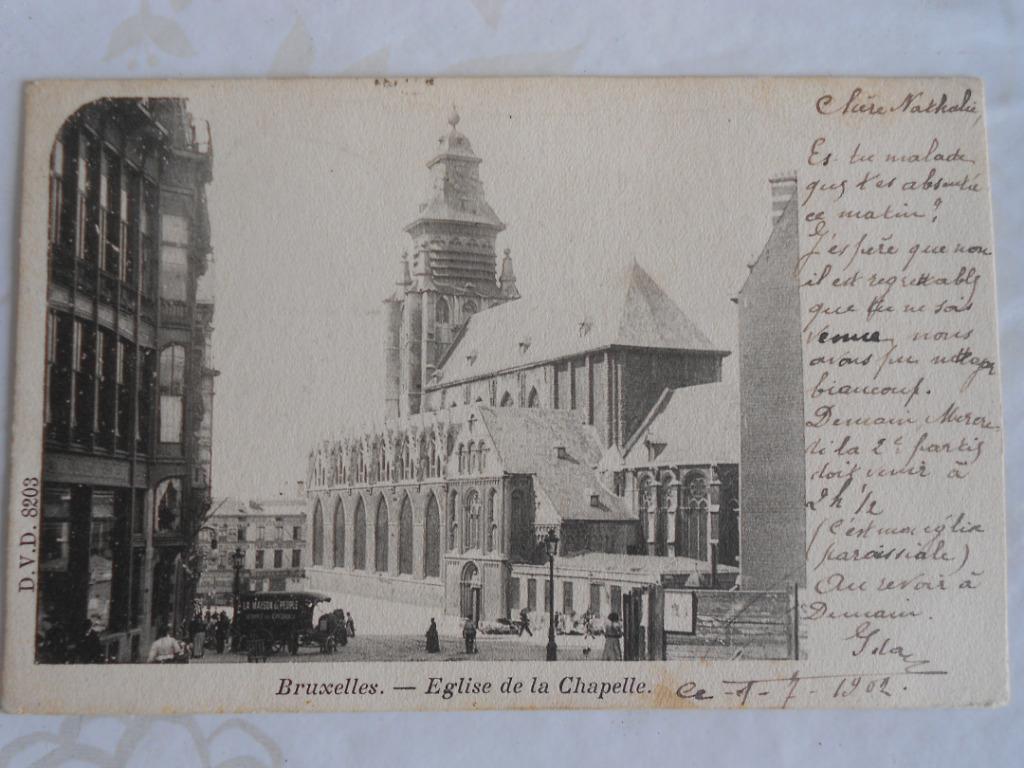 Chère Nathalie,
Es tu malade
que t'es absentée
ce matin?
J'espère que non
il est regrettable
que tu ne sois
venue, nous
avons pu nettoyer
biaucoup.
Demain Mercre
di la 2e partie
doit venir à
2 h 1/2
(C'est mon église
paroissiale)
Au revoir à
Demain.
Ida
D.V.D. 8203
LA MAISON du PEUPLE
Bruxelles. — Eglise de la Chapelle.
Ce -1-7-1902.